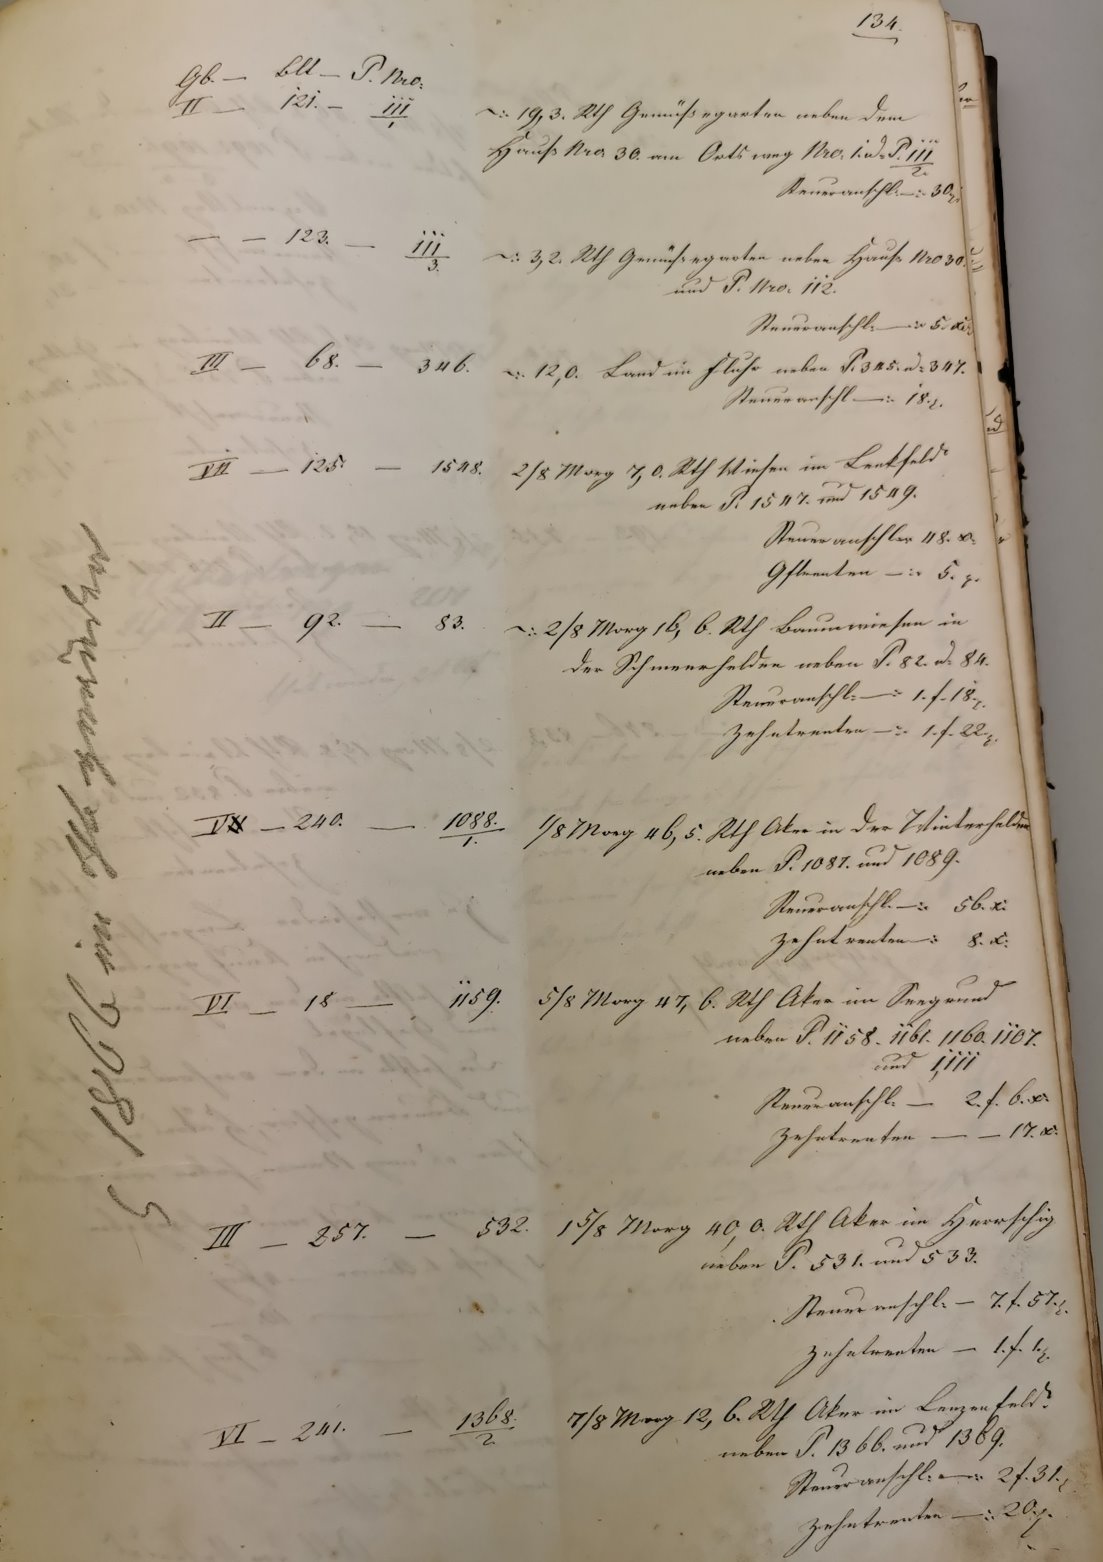 134.
Gb. — Bll — P. Nro:
II — 121. — 111/1 —:. 19,3. Rth Gemüßegarten neben dem
Hauß Nro 30. am Orts weg Nro. 1. u. P. 111/2.
Steueranschl. —: 30 x.
— — 123. — 111/3. —:. 3,2. Rth Gemüßegarten neben Hauß Nro 30.
und P. Nro. 112.
Steueranschl. —: 5. x.
III — 68. — 346. —:. 12,0. Land im Fluhr neben P. 345. u. 347.
Steueranschl. —: 18. x.
VII — 125. — 1548. 2/8 Morg 7,0. Rth Wiesen im Lenkfeld
neben P. 1547. und 1549.
Steueranschl. 48. x.
Gftrenten —: 5. x.
II — 92. — 83. —:. 2/8 Morg 16,6. Rth Baumwiesen in
der Schmeerhelden neben P. 82. u. 84.
Steueranschl. —: 1. f. 18 x.
Zehntrenten —: 1. f. 22 x.
V — 240. — 1088./1. 1/8 Morg 46,5. Rth Aker in der Winterhelden
neben P. 1087. und 1089.
Steueranschl. —: 56. x.
Zehntrenten —: 8. x.
VI — 18 — 1159. 5/8 Morg 47,6. Rth Aker im Seegrund
neben P. 1158. 1161. 1160. 1107.
und 1111
Steueranschl. — 2. f. 6. x.
Zehntrenten — — 17. x.
III — 257. — 532. 1 5/8 Morg 40,0. Rth Aker im Herrschig
neben P. 531. und 533.
Steueranschl. — 7. f. 57. x.
Zehntrenten — 1. f. 1 x.
VI — 241. — 1368./2. 7/8 Morg 12,6. Rth Aker im Lenzenfeld
neben P. 1366. und 1369.
Steueranschl. —: 2 f. 31. x.
Zehntrenten —: 20 x.